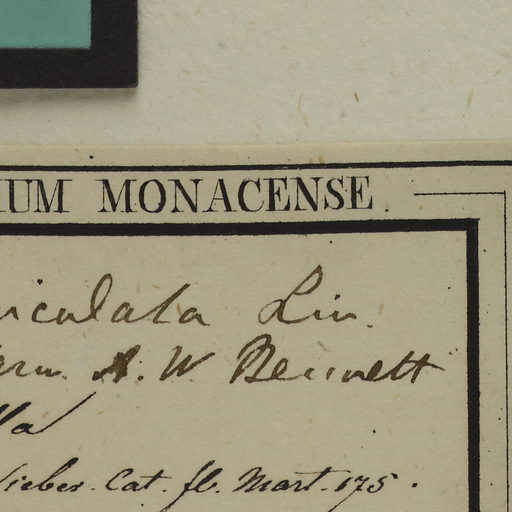 IUM MONACENSE
iculata Lin.
erm. A. W. Bennett
lla
Sieber. Cat. fl. Mart. 175.